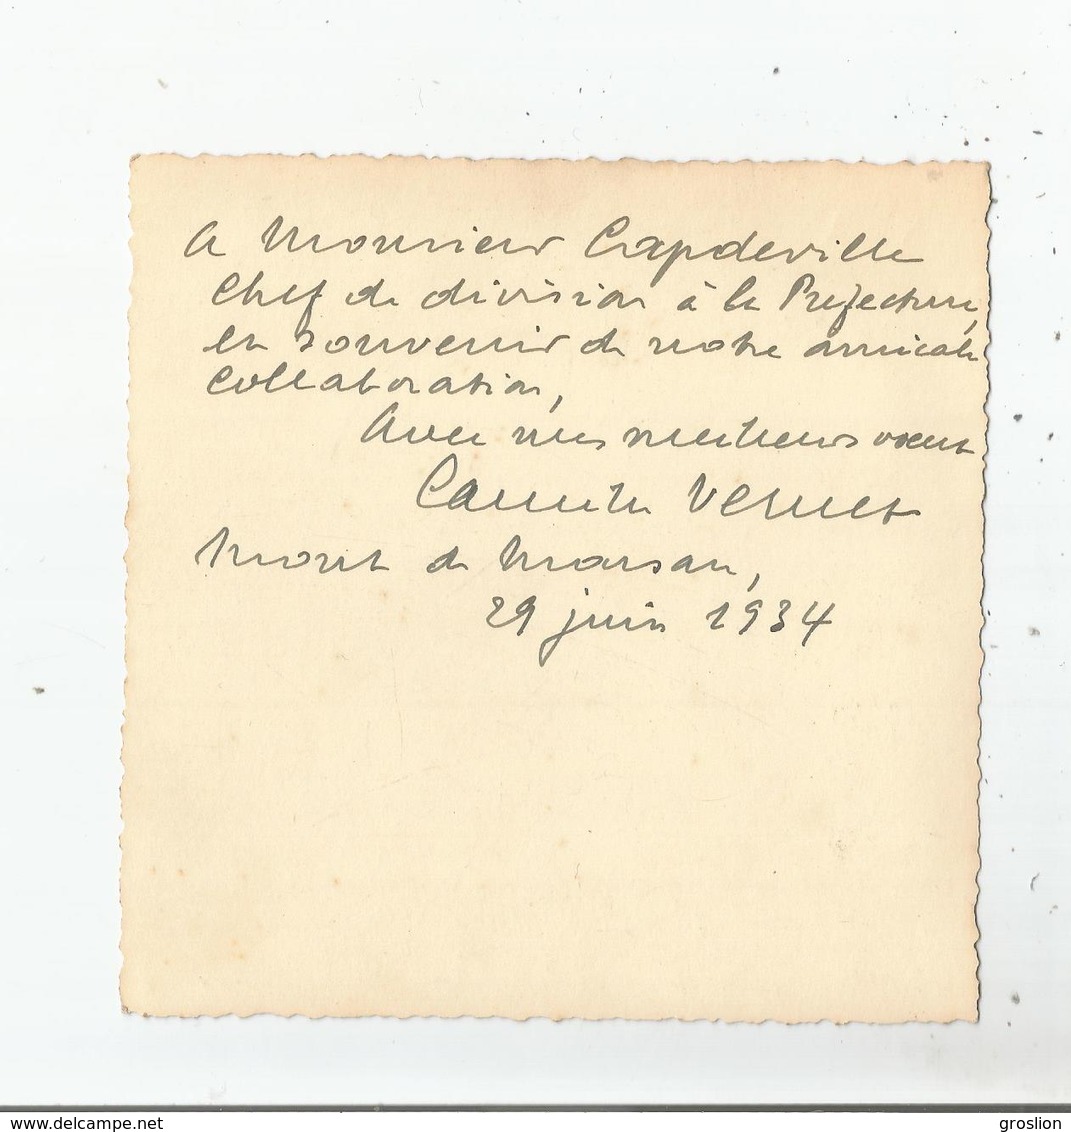 A Monsieur Capdeville
Chef de division à la Préfecture,
en souvenir de notre amicale
collaboration,
Avec mes meilleurs voeux
Camille Vernet
Mont de Marsan,
29 juin 1934
www.delcampe.net
groslion